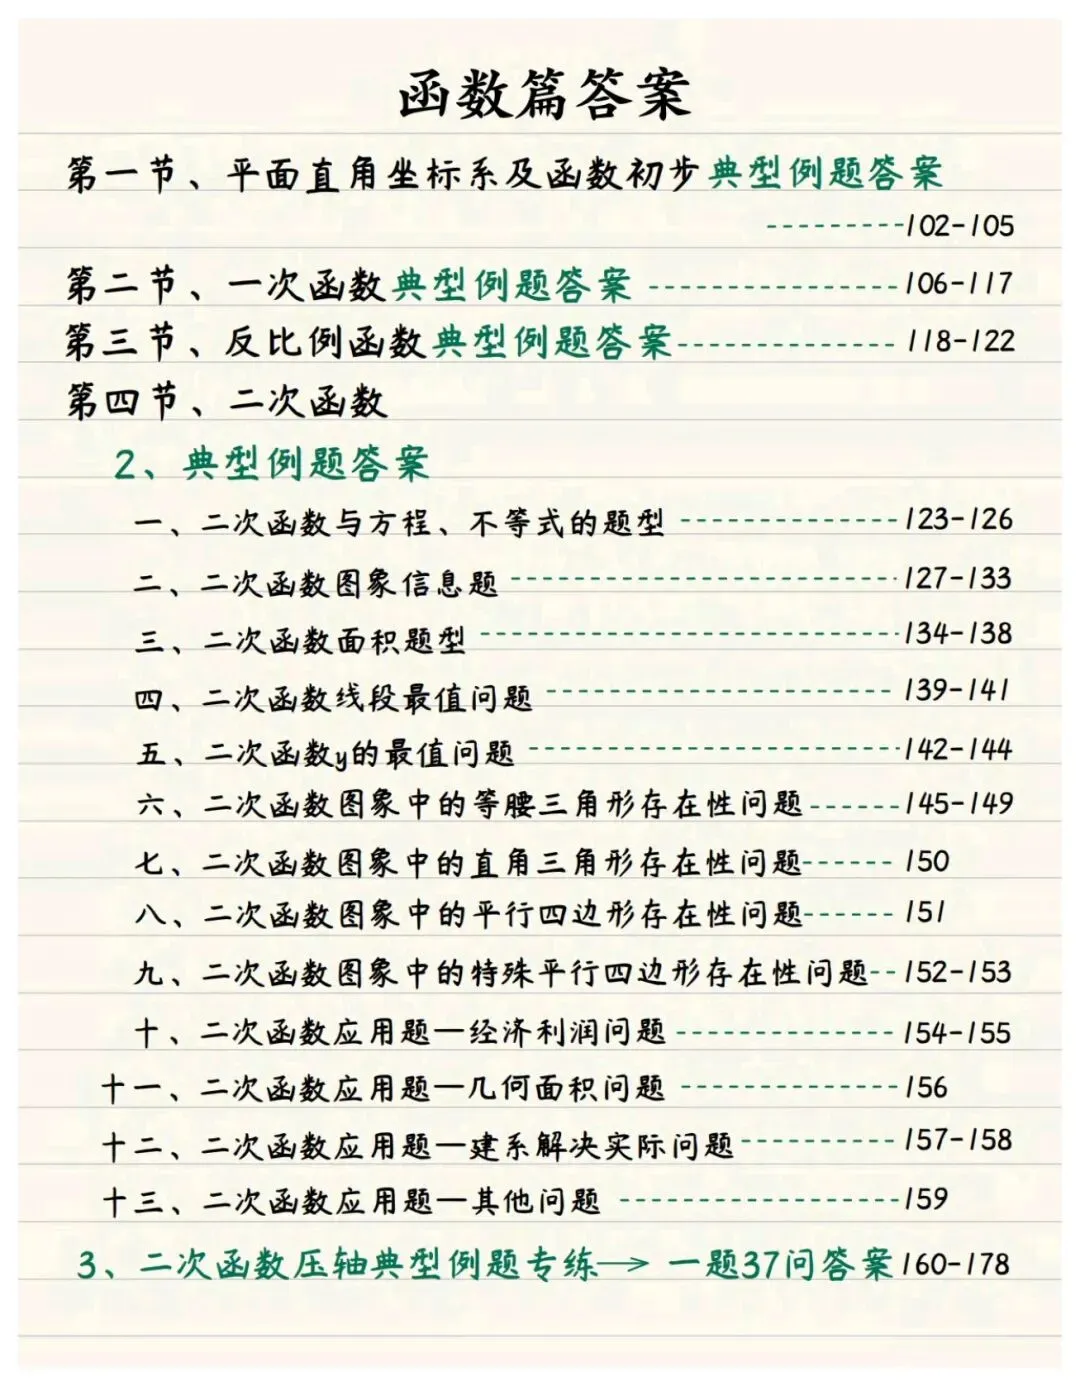 函数篇答案
第一节、平面直角坐标系及函数初步典型例题答案
---------102-105
第二节、一次函数典型例题答案----------------106-117
第三节、反比例函数典型例题答案--------------118-122
第四节、二次函数
2、典型例题答案
一、二次函数与方程、不等式的题型--------------123-126
二、二次函数图象信息题------------------------127-133
三、二次函数面积题型--------------------------134-138
四、二次函数线段最值问题----------------------139-141
五、二次函数y的最值问题-----------------------142-144
六、二次函数图象中的等腰三角形存在性问题------145-149
七、二次函数图象中的直角三角形存在性问题------150
八、二次函数图象中的平行四边形存在性问题------151
九、二次函数图象中的特殊平行四边形存在性问题--152-153
十、二次函数应用题—经济利润问题--------------154-155
十一、二次函数应用题—几何面积问题--------------156
十二、二次函数应用题—建系解决实际问题----------157-158
十三、二次函数应用题—其他问题------------------159
3、二次函数压轴典型例题专练→一题37问答案160-178